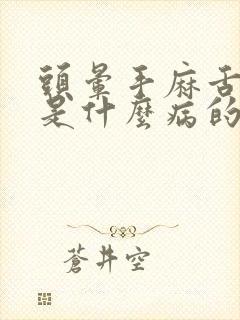 頭暈手麻舌
是什麼病的
蒼井空